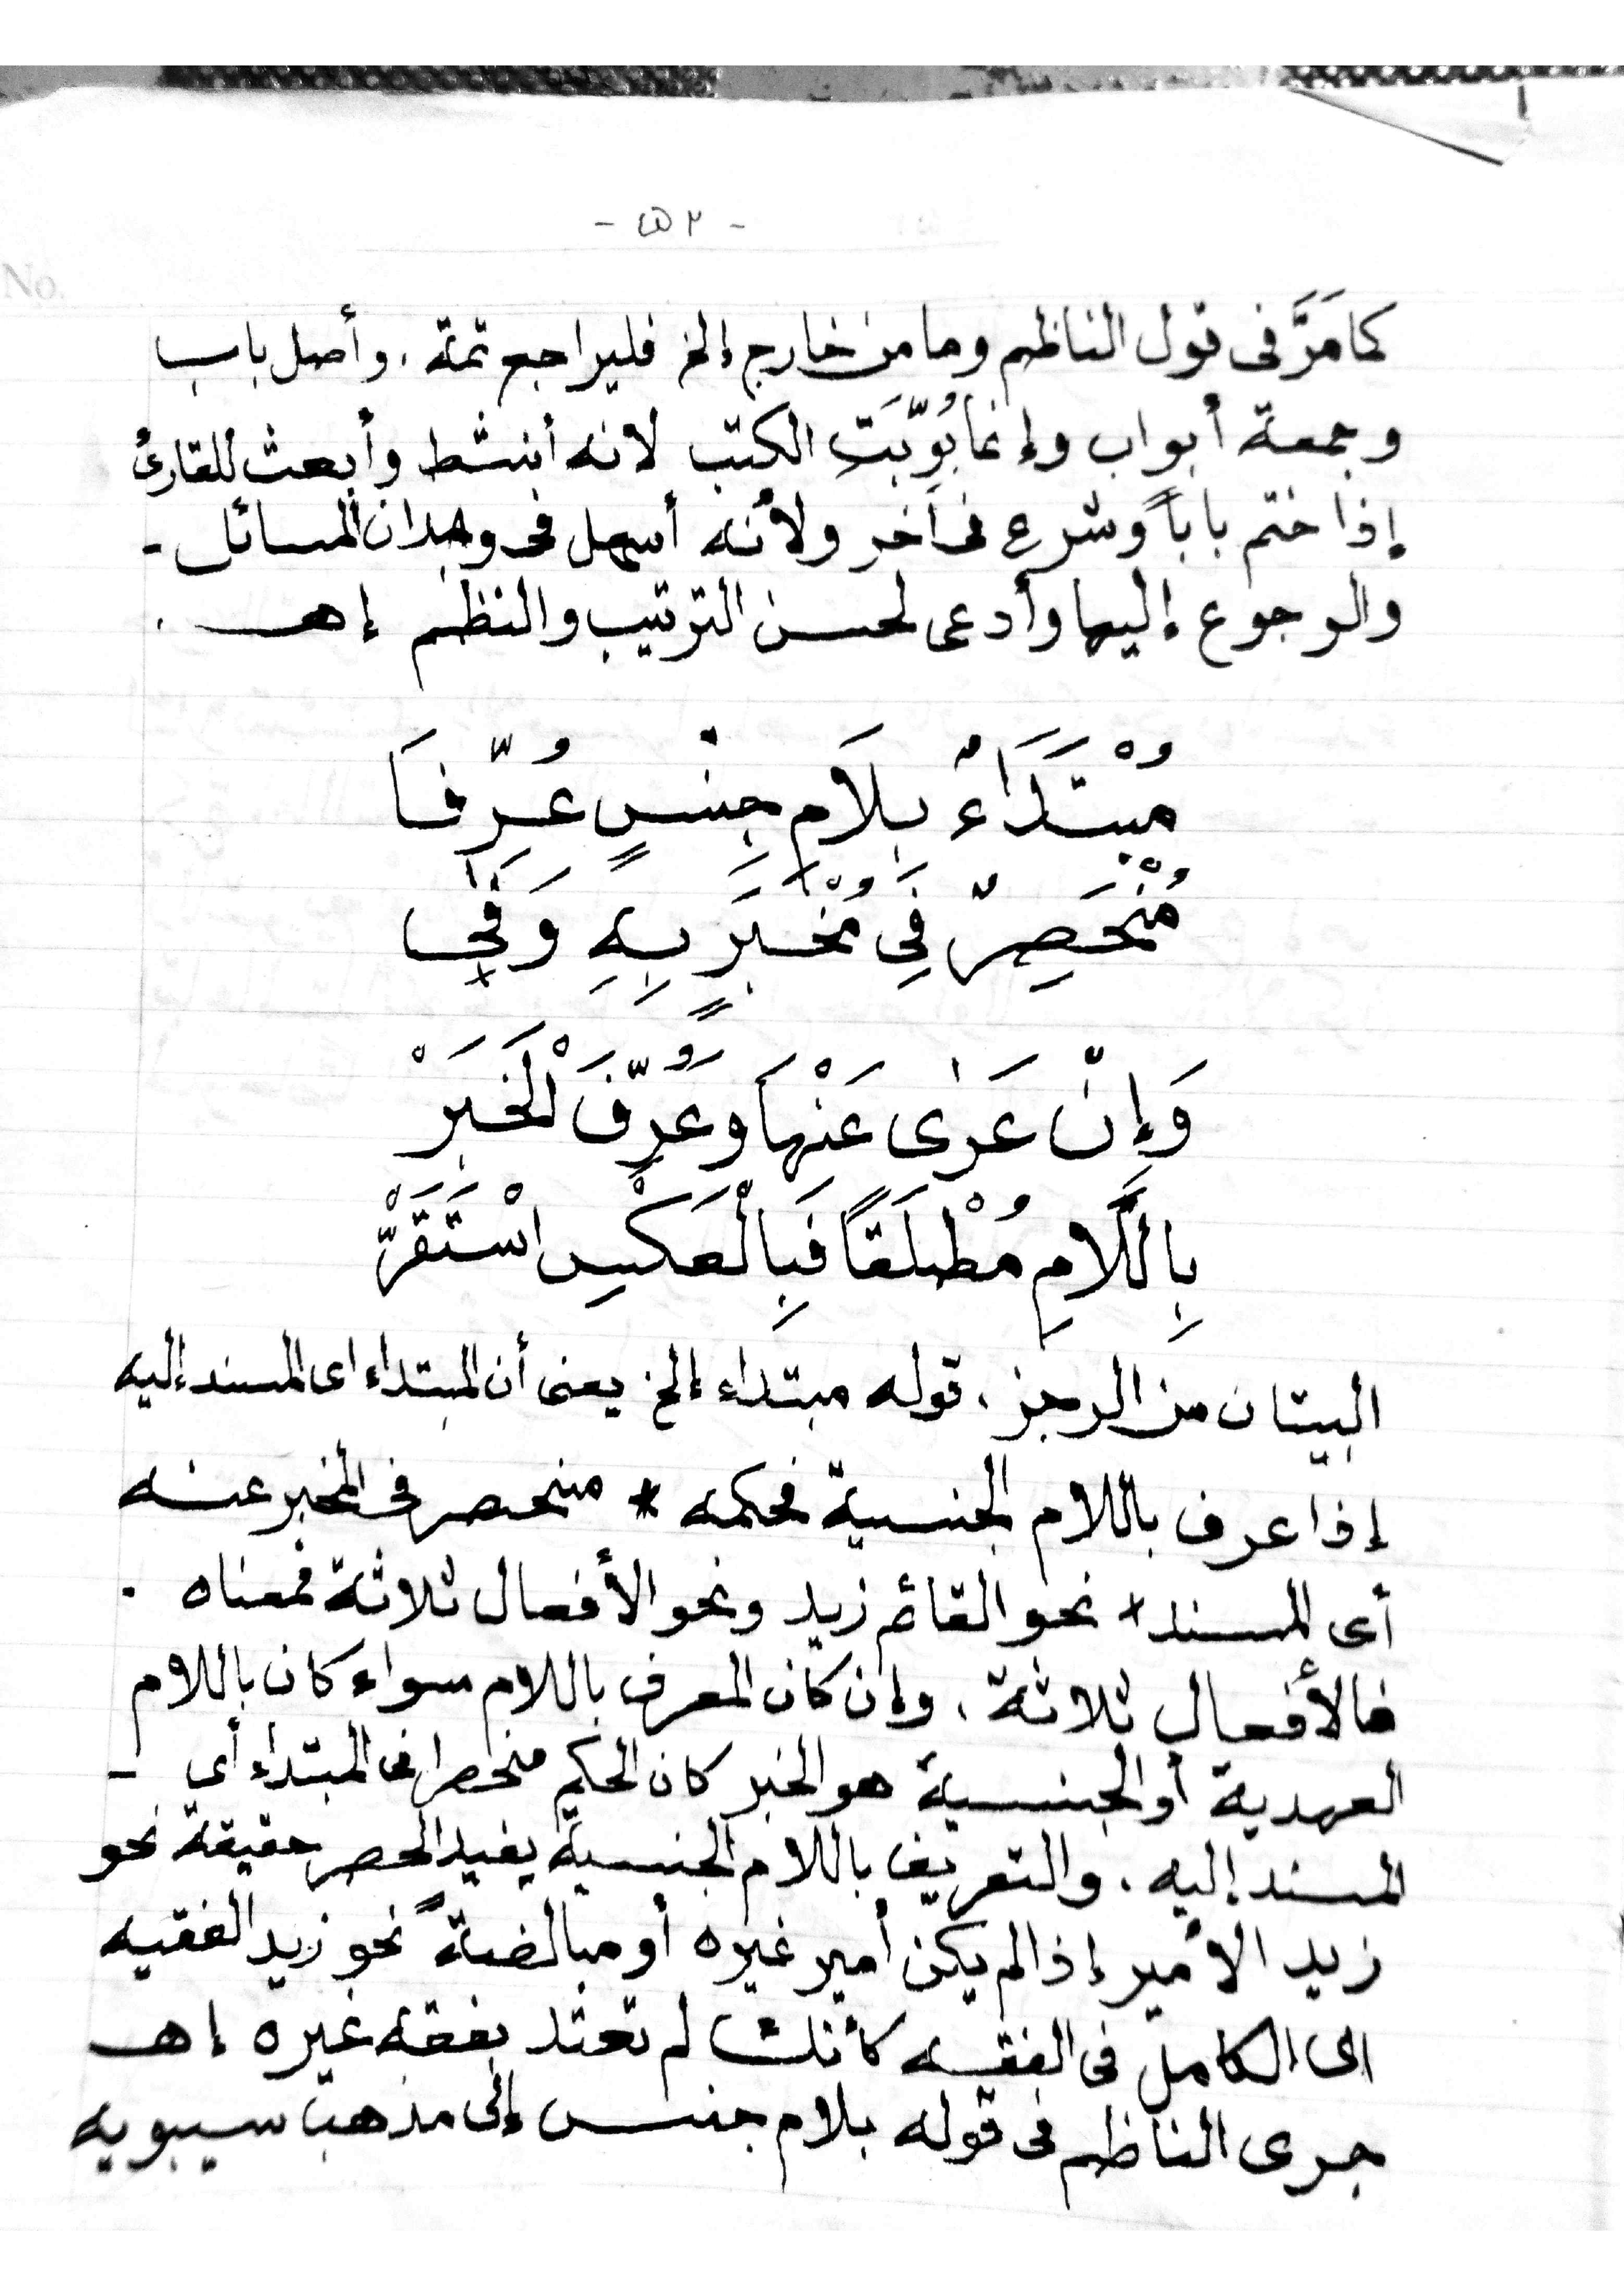 - ٥٢ -
No.
كما مَرَّ فى قول الناظم وما من خارج إلخ فليراجع ثمة . وأصل باب
وجمعه أبواب وإنما بُوِّبَتِ الكتب لانه أنشط وأبعث للقارئ
إذا ختم باباً وشرع فى آخر ولأنه أسهل فى وجدان المسائل -
والرجوع إليها وأدعى لحسن الترتيب والنظم إهـ .
مُبْتَدَاءٌ بِلَامِ جِنْسٍ عُرِّفَا
مُنْحَصِرٌ فِى مُخْبَرٍ بِهِ وَفَى
وَإِنْ عَرٰى عَنْهَا وَعُرِّفَ الْخَبَرْ
بِاللَّامِ مُطْلَقًا فَبِالْعَكْسِ اسْتَقَرّْ
البيتان من الرجز . قوله مبتداء إلخ يعنى أن المبتداء اى المسند إليه
إذا عرف باللام الجنسية فحكمه * منحصر فى المخبر عنه
أى المسند * نحو القائم زيد ونحو الأفعال ثلاثة فمعناه .
فالأفعال ثلاثة . وإن كان المعرف باللام سواء كان باللام
العهدية أو الجنسية هو الخبر كان الحكم منحصرا فى المبتداء أي -
المسند إليه . والتعريف باللام الجنسية يفيد الحصر حقيقة نحو
زيد الأمير إذا لم يكن أمير غيره أو مبالغةً نحو زيد الفقيه
اى الكامل فى الفقه كأنك لم تعتد بفقه غيره إهـ
جرى الناظم فى قوله بلام جنس إلى مذهب سيبويه